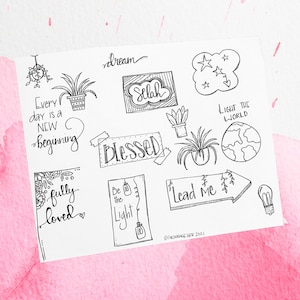 dream
Selah
Every
day is a
NEW
beginning
LIGHT THE
WORLD
Blessed
fully
loved
Be
the
Light
Lead Me